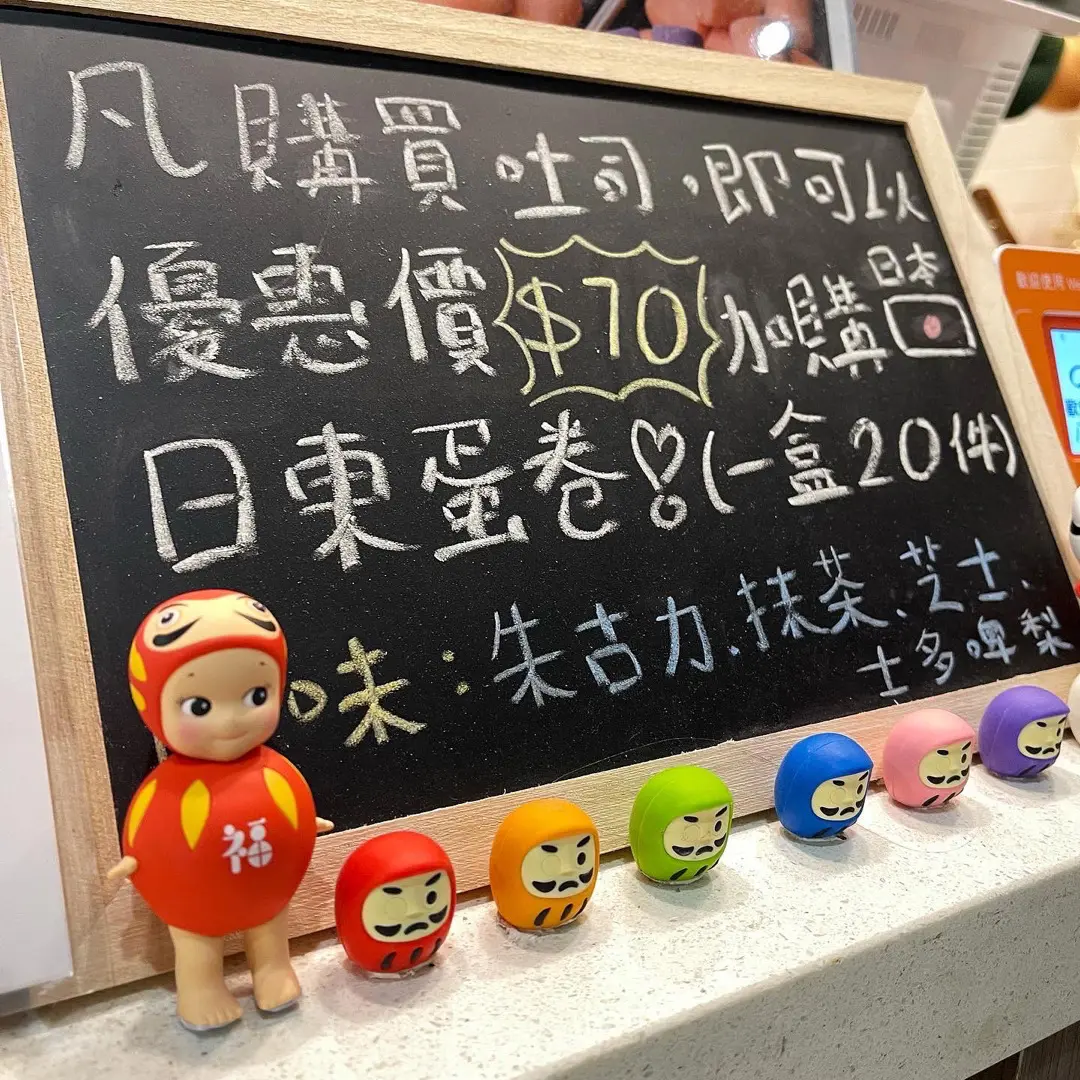 凡購買吐司，即可以
優惠價$70加購日本
日東蛋卷(一盒20件)
味：朱古力、抹茶、芝士、
士多啤梨
福
歡迎使用 We